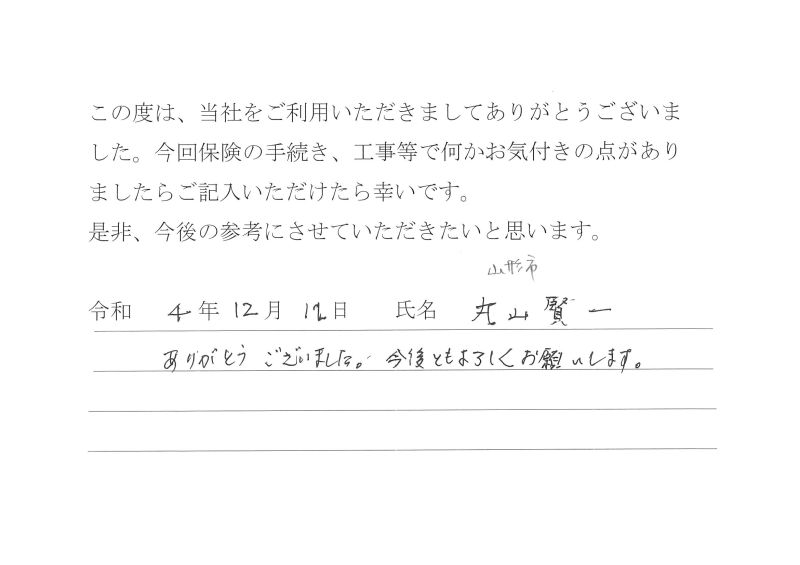 この度は、当社をご利用いただきましてありがとうございま
した。今回保険の手続き、工事等で何かお気付きの点があり
ましたらご記入いただけたら幸いです。
是非、今後の参考にさせていただきたいと思います。
山形市
令和 4年 12月 日 氏名 丸山 賢一
ありがとうございました。今後ともよろしくお願いします。